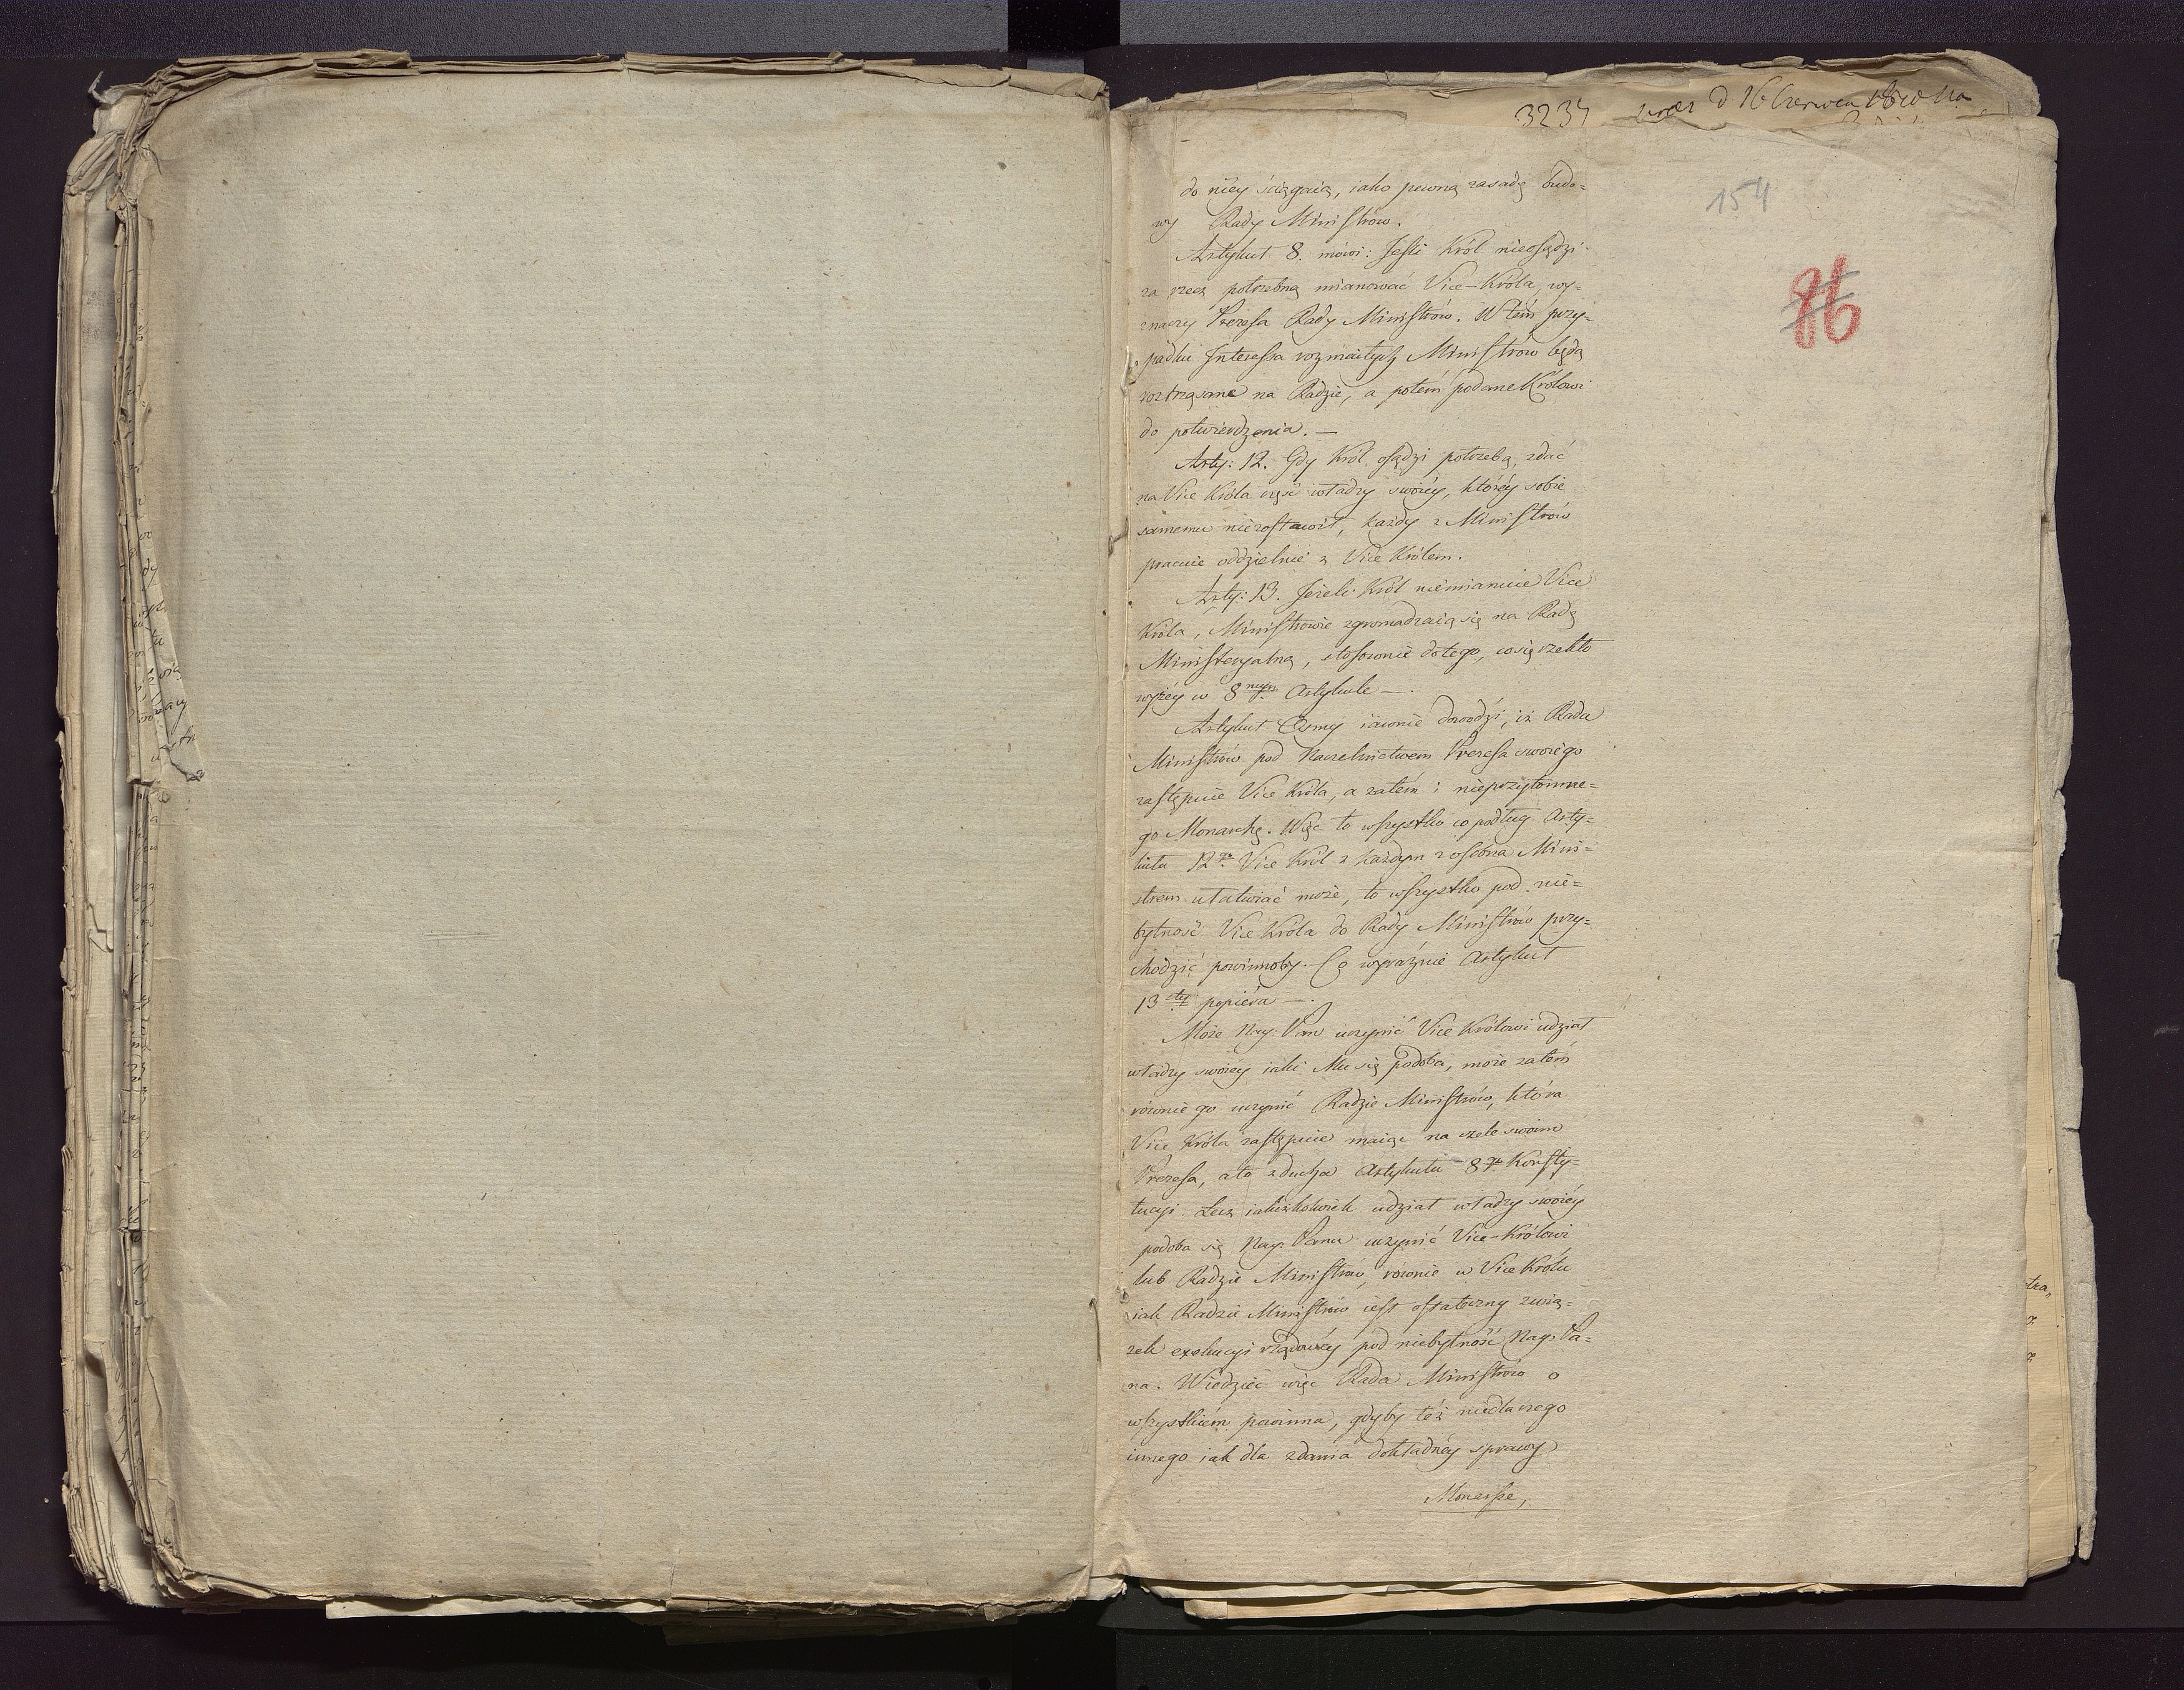 3234 d 16 Czerwca 1810 No
154
86
do niey ściągaią, iako pewną zasadę budo=
wy Rady Ministrów.
Artykuł 8. mówi: Jeśli Król nieosądzi
za rzecz potrzebną mianować Vice-Króla, wy=
znaczy Prezesa Rady Ministrów. W tém przy=
padku Interessa rozmaitych Ministrów będą
roztrząsane na Radzie, a potém podane Królowi
do potwierdzenia. —
Arty: 12. Gdy Król osądzi potrzebą, zdać
na Vice Króla część władzy swoiéy, któréy sobie
samemu niezostawił, każdy z Ministrów
pracuie oddzielnie z Vice Królem.
Arty: 13. Jeżeli Król niemianuie Vice
Króla, Ministrowie zgromadzaią się na Radę
Ministeryalną, stosownie dotego, co się rzekło
wyżéy w 8mym Artykule —.
Artykuł Ósmy iawnie dowodzi, iż Rada
Ministrów pod Naczelnictwem Prezesa swoiego
zastępuie Vice Króla, a zatém i nieprzytomne=
go Monarchę. Więc to wszystko co podług Arty=
kułu 12go Vice Król z każdym z osobna Mini=
strem ułatwiać może, to wszystko pod nie=
bytność Vice Króla do Rady Ministrów przy=
chodzić powinnoby. Co wyraźnie Artykuł
13sty popiéra —.
Może Nay: Pan uczynić Vice Królowi udział
władzy swoiéy iaki Mu się podoba, może zatém
równie go uczynić Radzie Ministrów, która
Vice Króla zastępuie maiąc na czele swoim
Prezesa, a to z ducha Artykułu 8go Konsty=
tucyi. Lecz iakiżkolwiek udział władzy swoiéy
podoba się Nay: Panu uczynić Vice-Królowi
lub Radzie Ministrów, równie w Vice Królu
iak Radzie Ministrów iest ostateczny zwią=
zek exekucyi rządowéy pod niebytność Nay: Pa=
na. Wiedzieć więc Rada Ministrów o
wszystkiém powinna, gdyby téż niedlaczego
innego iak dla zdania dokładnéy sprawy
Monarsze,